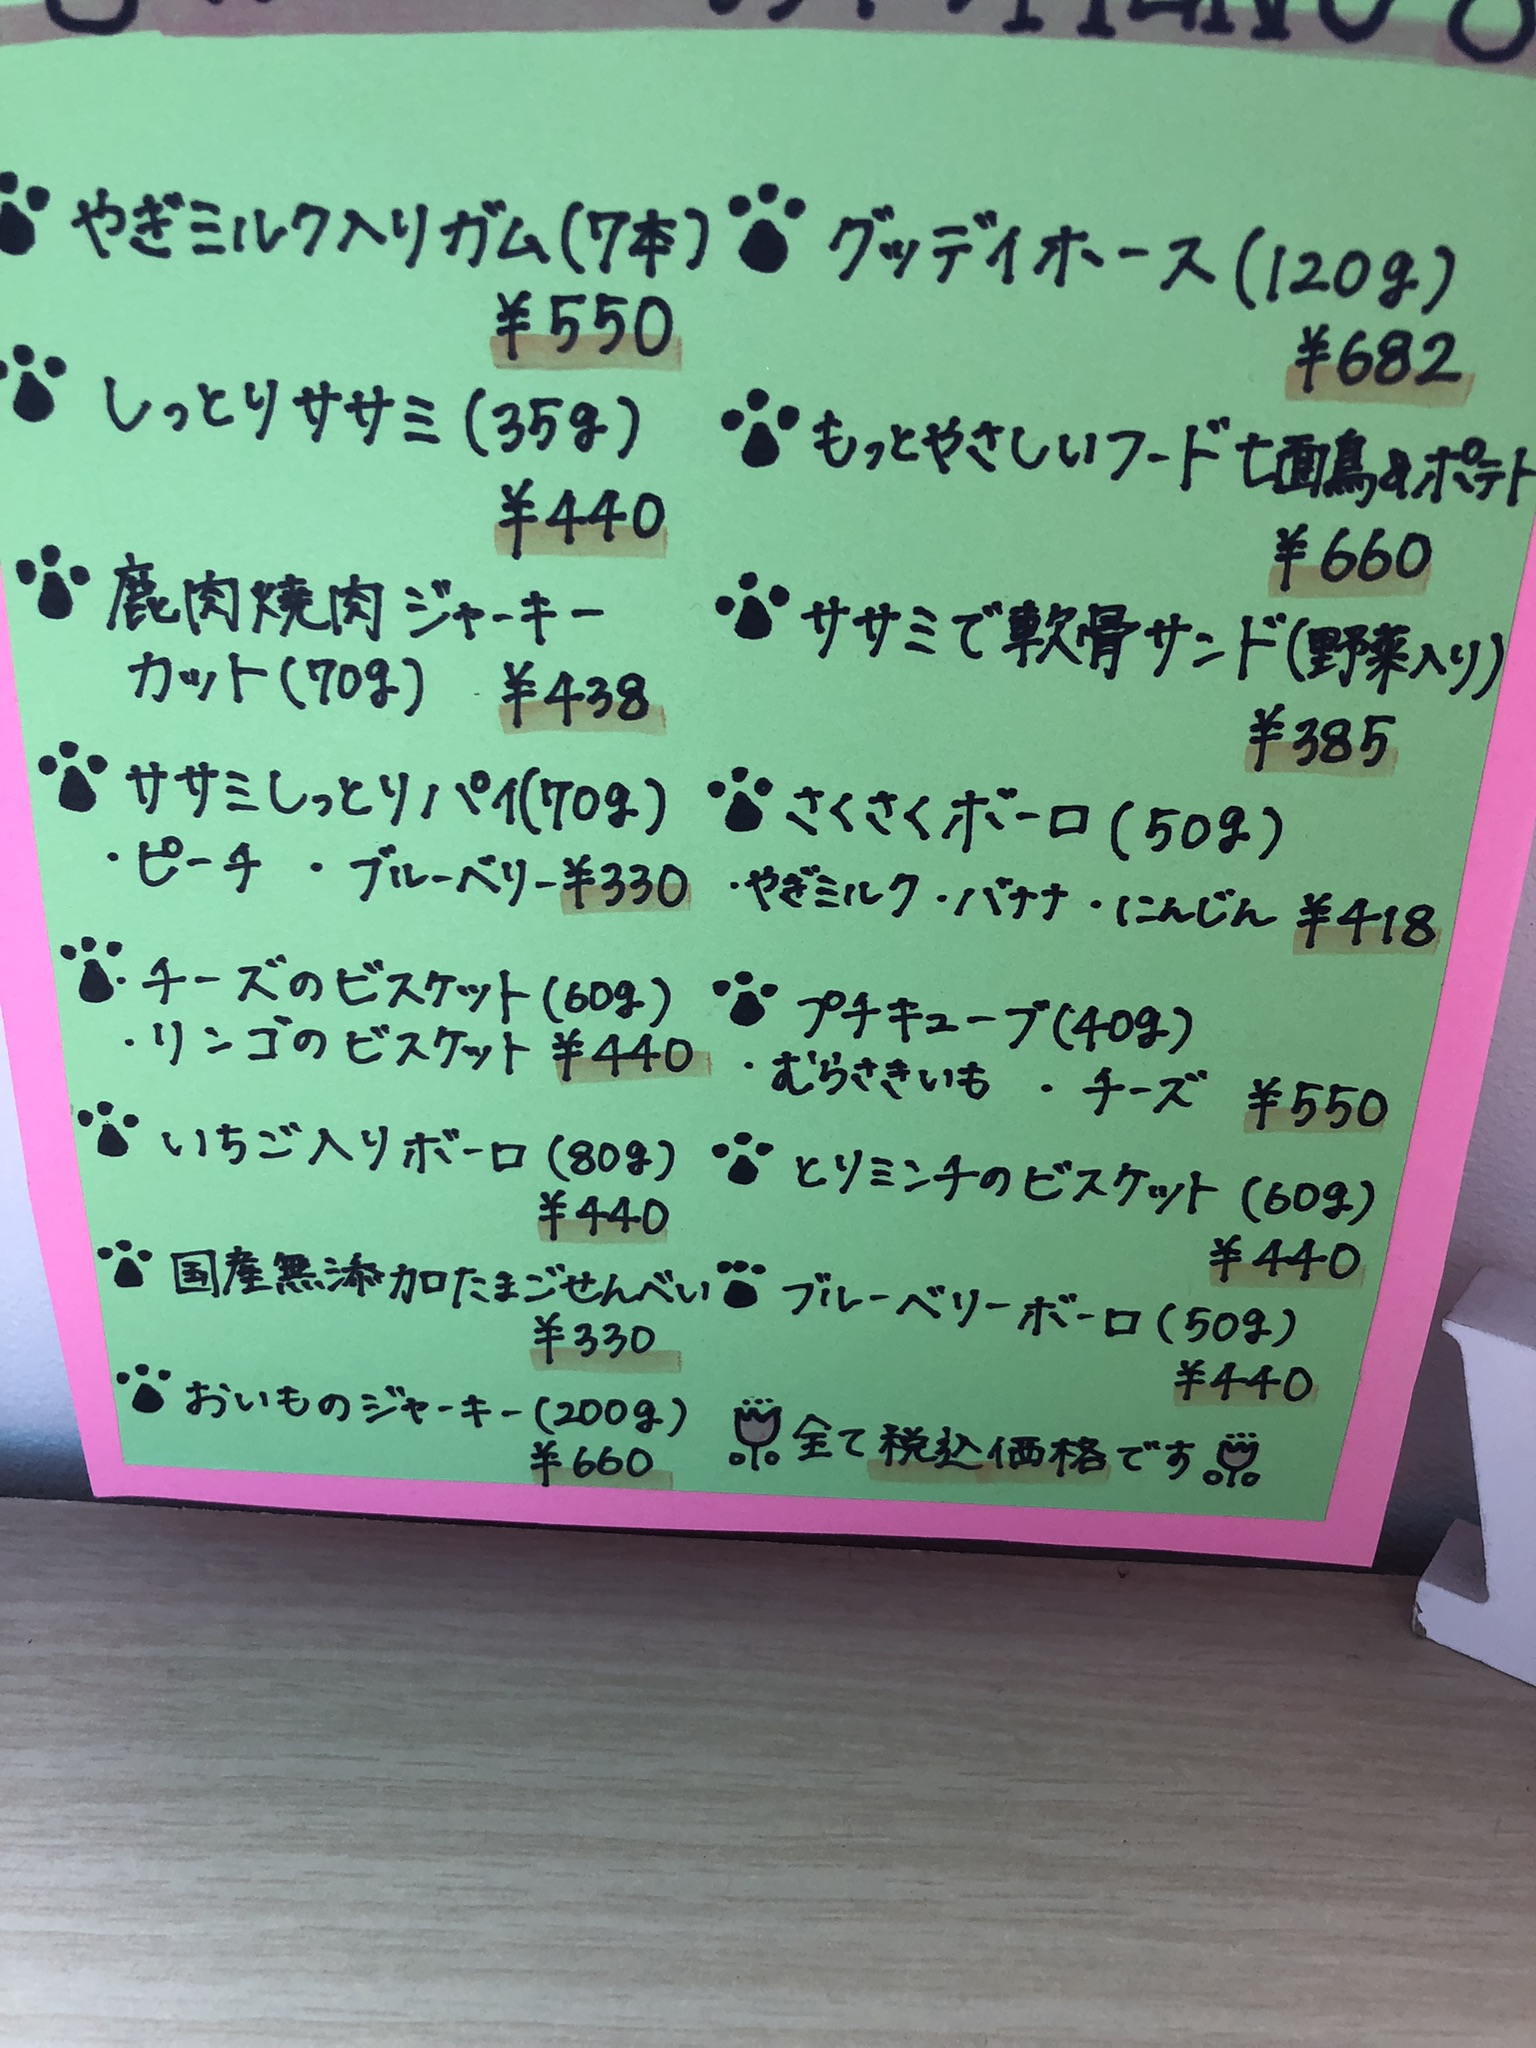 MENU
やぎミルク入りガム(7本)
¥550
しっとりササミ(35g)
¥440
鹿肉焼肉ジャーキー
カット(70g) ¥438
ササミしっとりパイ(70g)
・ピーチ ・ブルーベリー ¥330
・チーズのビスケット(60g)
・リンゴのビスケット ¥440
いちご入りボーロ(80g)
¥440
国産無添加たまごせんべい
¥330
おいものジャーキー(200g)
¥660
グッデイホース(120g)
¥682
もっとやさしいフード七面鳥&ポテト
¥660
ササミで軟骨サンド(野菜入り)
¥385
さくさくボーロ(50g)
・やぎミルク・バナナ・にんじん ¥418
プチキューブ(40g)
・むらさきいも ・チーズ ¥550
とりミンチのビスケット(60g)
¥440
ブルーベリーボーロ(50g)
¥440
全て税込価格です